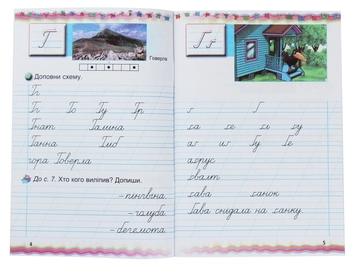 Г
Говерла
Доповни схему.
Гг
Гг Го Гу Гр
Гнат Галина
Ганна Гліб
гора Говерла
До с. 7. Хто кого виліпив? Допиши.
– пінгвіна.
– голуба
– бегемота
4
Ґґ
ґ Ґ
ґа ґе ґі ґу
аґ иґ Ґу Ґе
аґрус
ґвалт
ґава ґанок
Ґава снідала на ґанку.
5